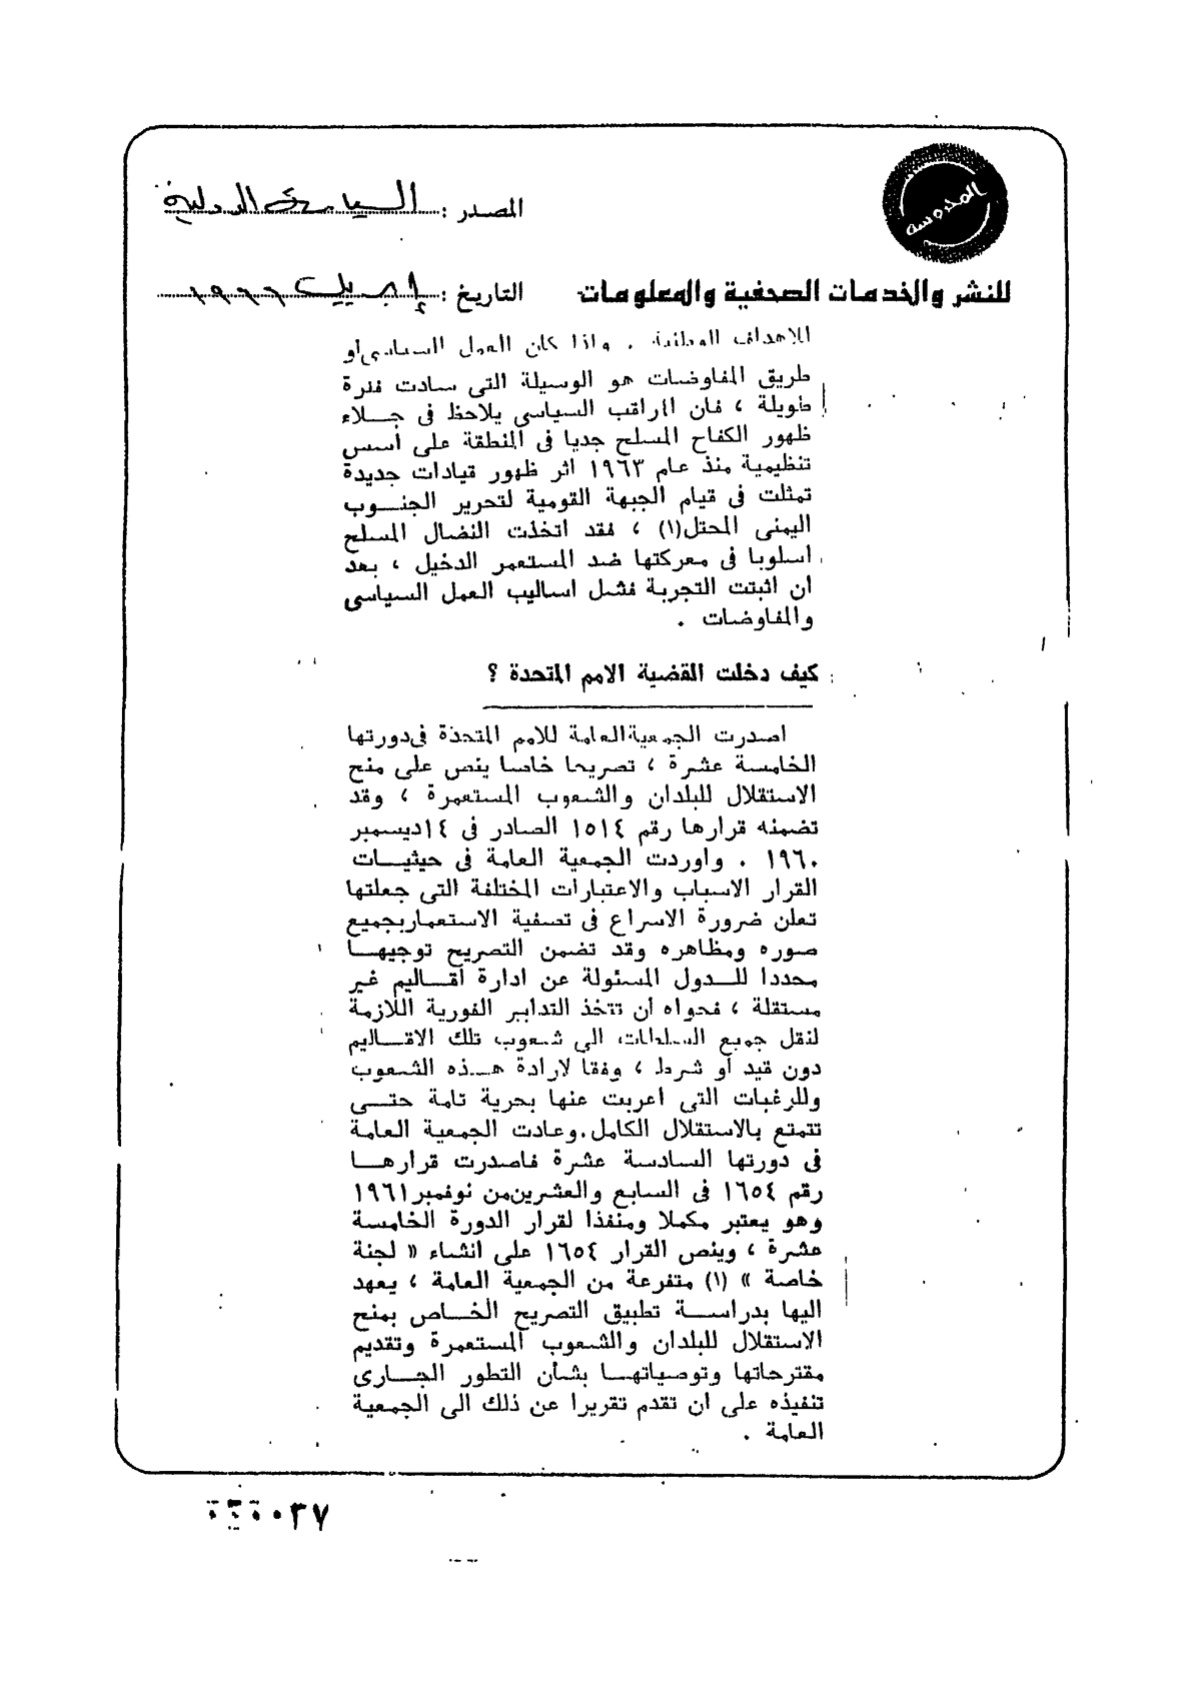 المحروسة
المصدر : السياسة الدولية
للنشر والخدمات الصحفية والمعلومات
التاريخ : إبريل ١٩٦٦
للاهداف الوطنية . واذا كان العمل السياسى أو
طريق المفاوضات هو الوسيلة التى سادت فترة
طويلة ، فان المراقب السياسى يلاحظ فى جـــلاء
ظهور الكفاح المسلح جديا فى المنطقة على أسس
تنظيمية منذ عام ١٩٦٣ اثر ظهور قيادات جديدة
تمثلت فى قيام الجبهة القومية لتحرير الجنــوب
اليمنى المحتل(١) ، فقد اتخذت النضال المسلح
اسلوبا فى معركتها ضد المستعمر الدخيل ، بعد
ان اثبتت التجربة فشل اساليب العمل السياسى
والمفاوضات .
كيف دخلت القضية الامم المتحدة ؟
اصدرت الجمعية العامة للامم المتحدة فى دورتها
الخامسة عشرة ، تصريحا خاصا ينص على منح
الاستقلال للبلدان والشعوب المستعمرة ، وقد
تضمنه قرارها رقم ١٥١٤ الصادر فى ١٤ ديسمبر
١٩٦٠ . واوردت الجمعية العامة فى حيثيــات
القرار الاسباب والاعتبارات المختلفة التى جعلتها
تعلن ضرورة الاسراع فى تصفية الاستعمار بجميع
صوره ومظاهره وقد تضمن التصريح توجيهــا
محددا للــدول المسئولة عن ادارة أقــاليم غير
مستقلة ، فحواه ان تتخذ التدابير الفورية اللازمة
لنقل جميع السلطات الى شعوب تلك الاقــاليم
دون قيد أو شرط ، وفقا لارادة هــذه الشعوب
وللرغبات التى اعربت عنها بحرية تامة حتــى
تتمتع بالاستقلال الكامل . وعادت الجمعية العامة
فى دورتها السادسة عشرة فاصدرت قرارهــا
رقم ١٦٥٤ فى السابع والعشرين من نوفمبر ١٩٦١
وهو يعتبر مكملا ومنفذا لقرار الدورة الخامسة
عشرة ، وينص القرار ١٦٥٤ على انشاء « لجنة
خاصة » (١) متفرعة من الجمعية العامة ، يعهد
اليها بدراســة تطبيق التصريح الخــاص بمنح
الاستقلال للبلدان والشعوب المستعمرة وتقديم
مقترحاتها وتوصياتهــا بشأن التطور الجــارى
تنفيذه على ان تقدم تقريرا عن ذلك الى الجمعية
العامة .